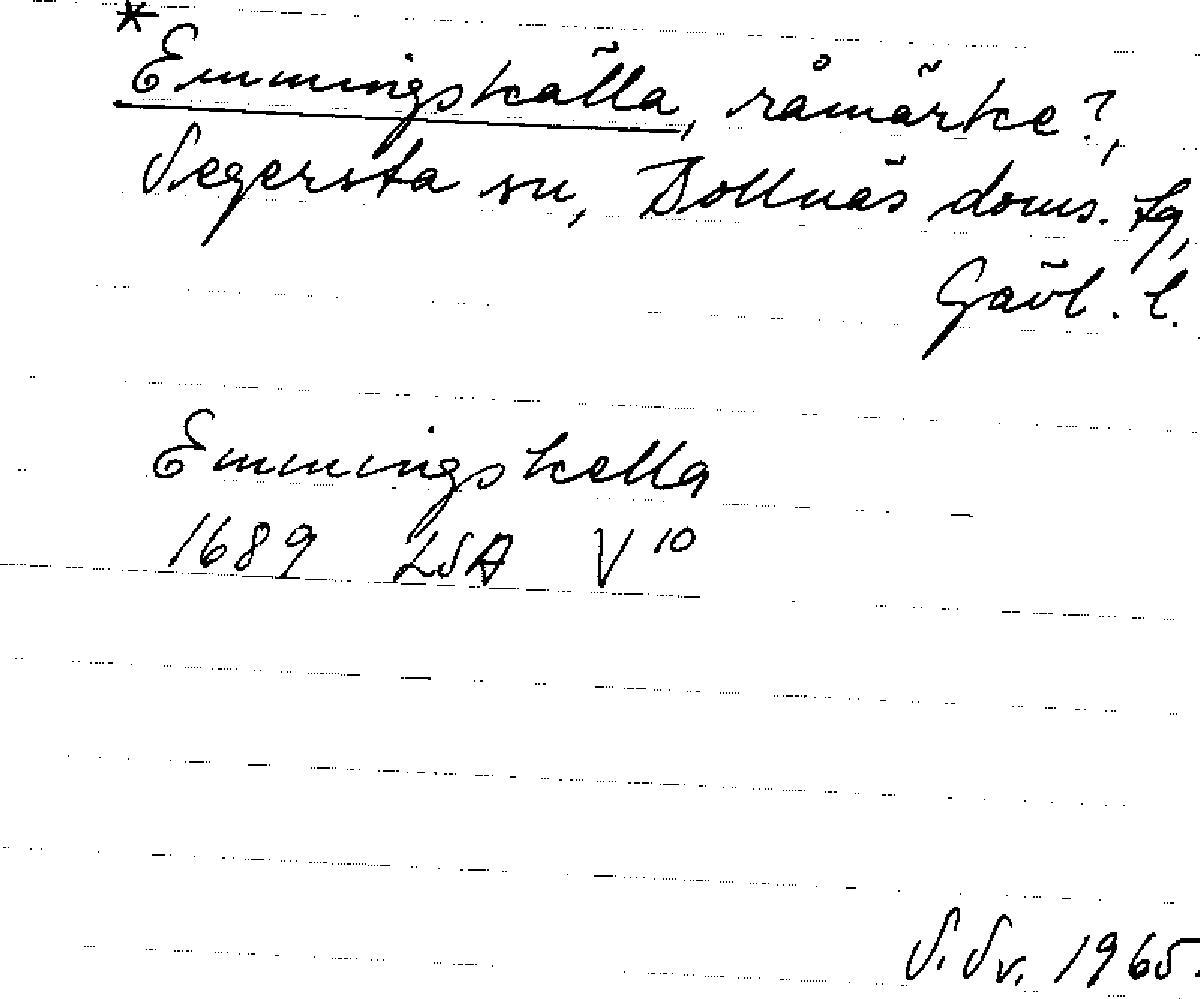 *
Emmingskälla, råmärke?,
Segersta sn, Bollnäs doms. tg,
Gävl. l.
Emmingskella
1689 LSA V 10
S. Sv. 1965.